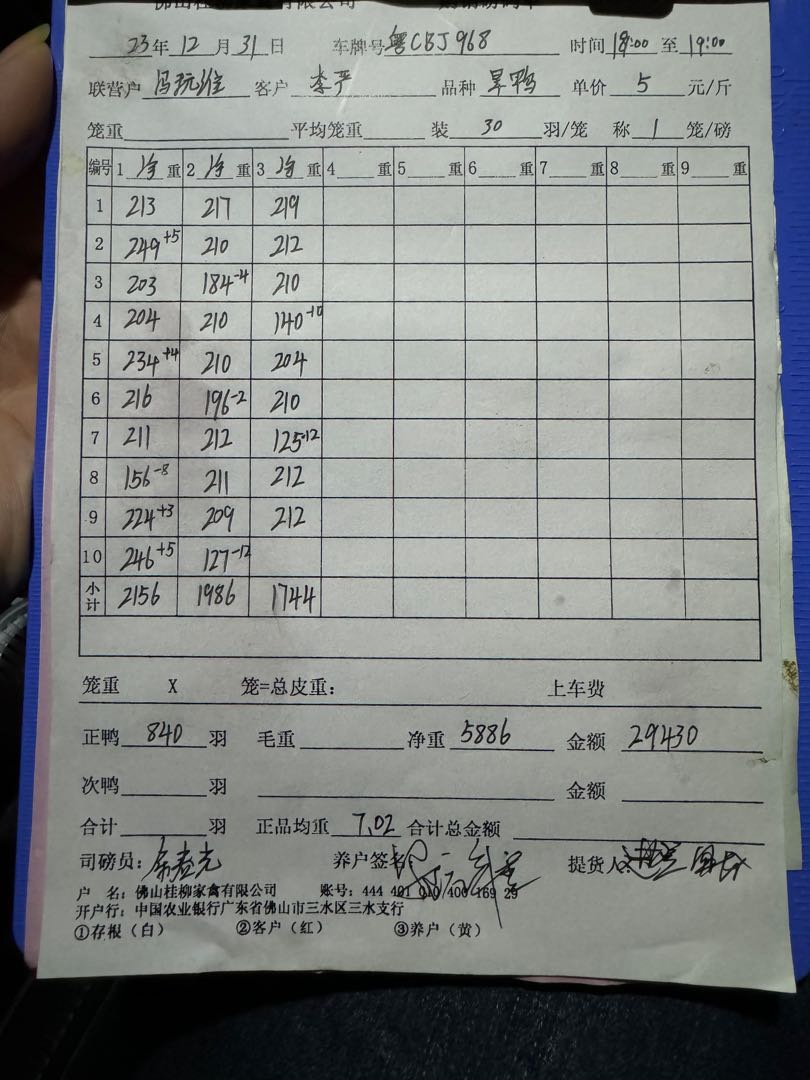 佛山桂柳家禽有限公司
23年 12 月 31 日 车牌号 粤CBJ968 时间 18:00 至 19:00
联营户 冯玩维 客户 李严 品种 旱鸭 单价 5 元/斤
笼重 平均笼重 装 30 羽/笼 称 1 笼/磅
编号 1 净 重 2 净 重 3 净 重 4 重 5 重 6 重 7 重 8 重 9 重
1 213 217 219
2 249+5 210 212
3 203 184-4 210
4 204 210 140-10
5 234+4 210 204
6 216 196-2 210
7 211 212 125-12
8 156-8 211 212
9 224+3 209 212
10 246+5 127-12
小计 2156 1986 1744
笼重 X 笼=总皮重: 上车费
正鸭 840 羽 毛重 净重 5886 金额 29430
次鸭 羽 金额
合计 羽 正品均重 7.02 合计总金额
司磅员: 养户签名: 提货人:
户 名: 佛山桂柳家禽有限公司 账号: 444 401 010 400 169 29
开户行: 中国农业银行广东省佛山市三水区三水支行
①存根（白） ②客户（红） ③养户（黄）